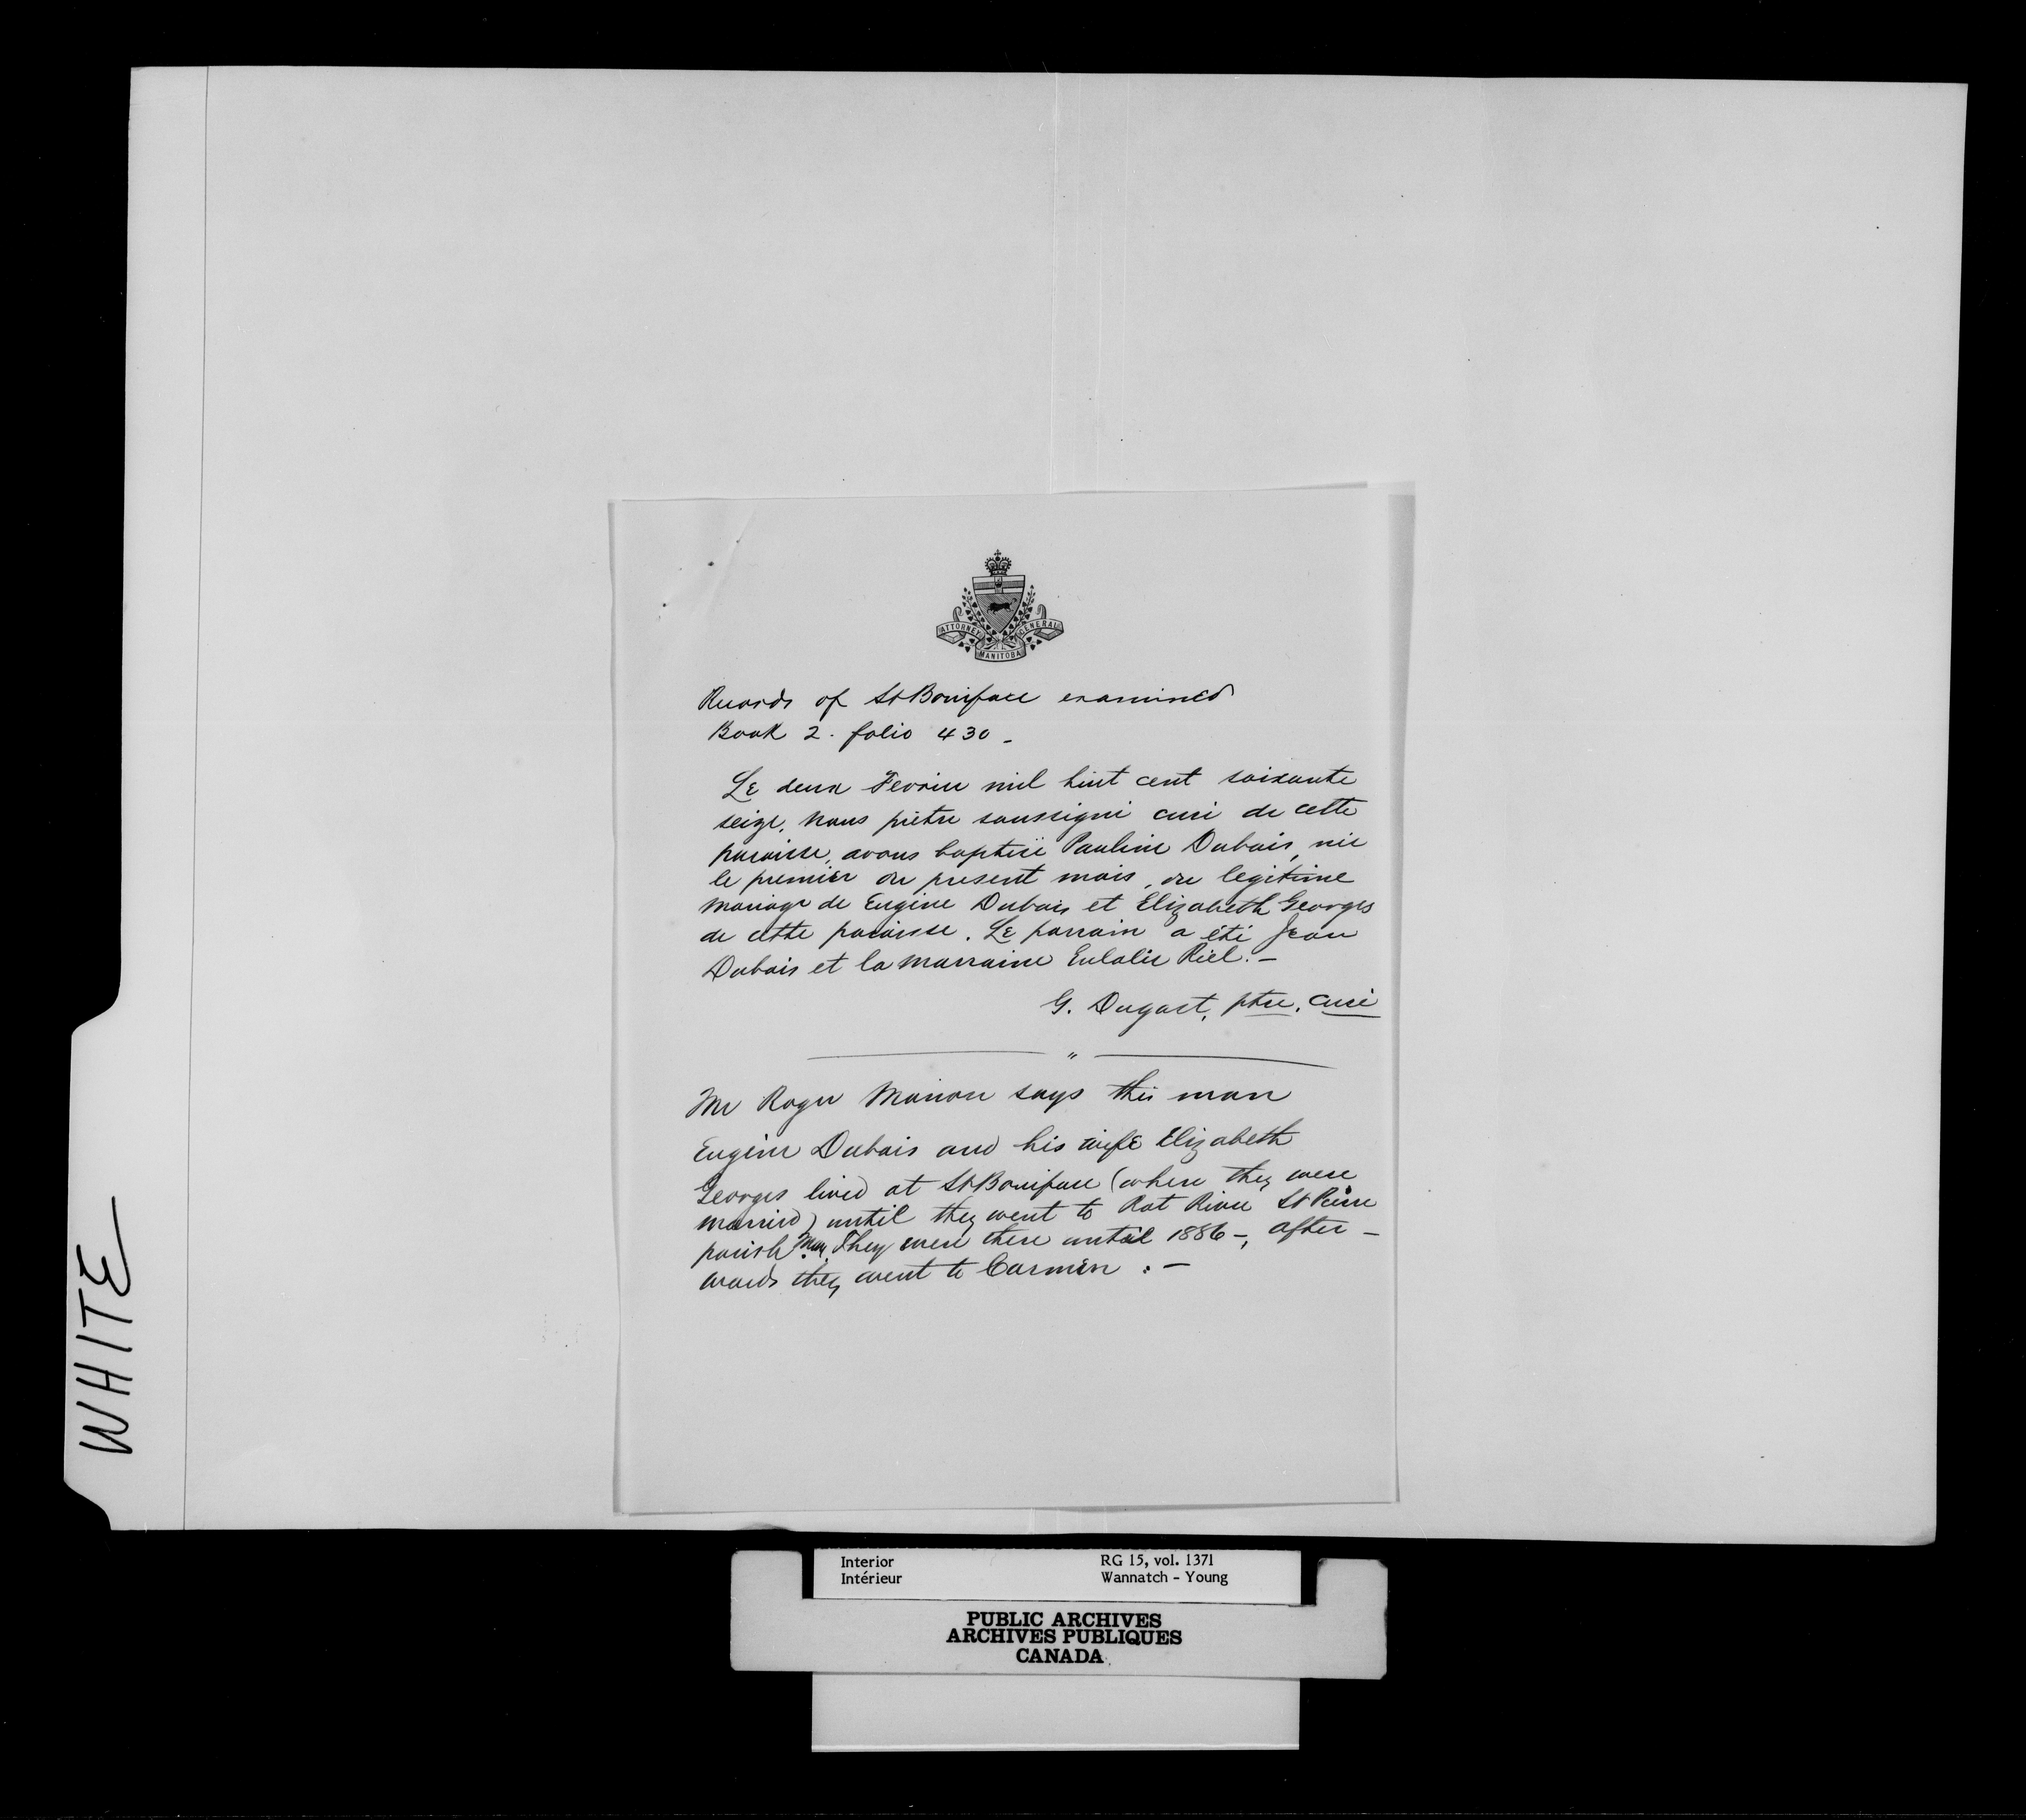 ATTORNEY GENERAL
MANITOBA
Records of St Boniface examined
Book 2. folio 430 -
Le deux Fevrier mil huit cent soixante
seize, nous prêtre soussigné curé de cette
paroisse, avons baptisé Pauline Dubois, née
le premier du present mois, du legitime
mariage de Eugène Dubois et Elizabeth Georges
de cette paroisse. Le parrain a été Jean
Dubois et la marraine Eulalie Riel. -
G. Dugast, ptre, curé
"
Mr Roger Marion says this man
Eugène Dubois and his wife Elizabeth
Georges lived at St Boniface (where they were
married) until they went to Rat River St Pierre
parish Man. They were there until 1886 -, after -
wards they went to Carmen : -
WHITE
Interior RG 15, vol. 1371
Intérieur Wannatch - Young
PUBLIC ARCHIVES
ARCHIVES PUBLIQUES
CANADA